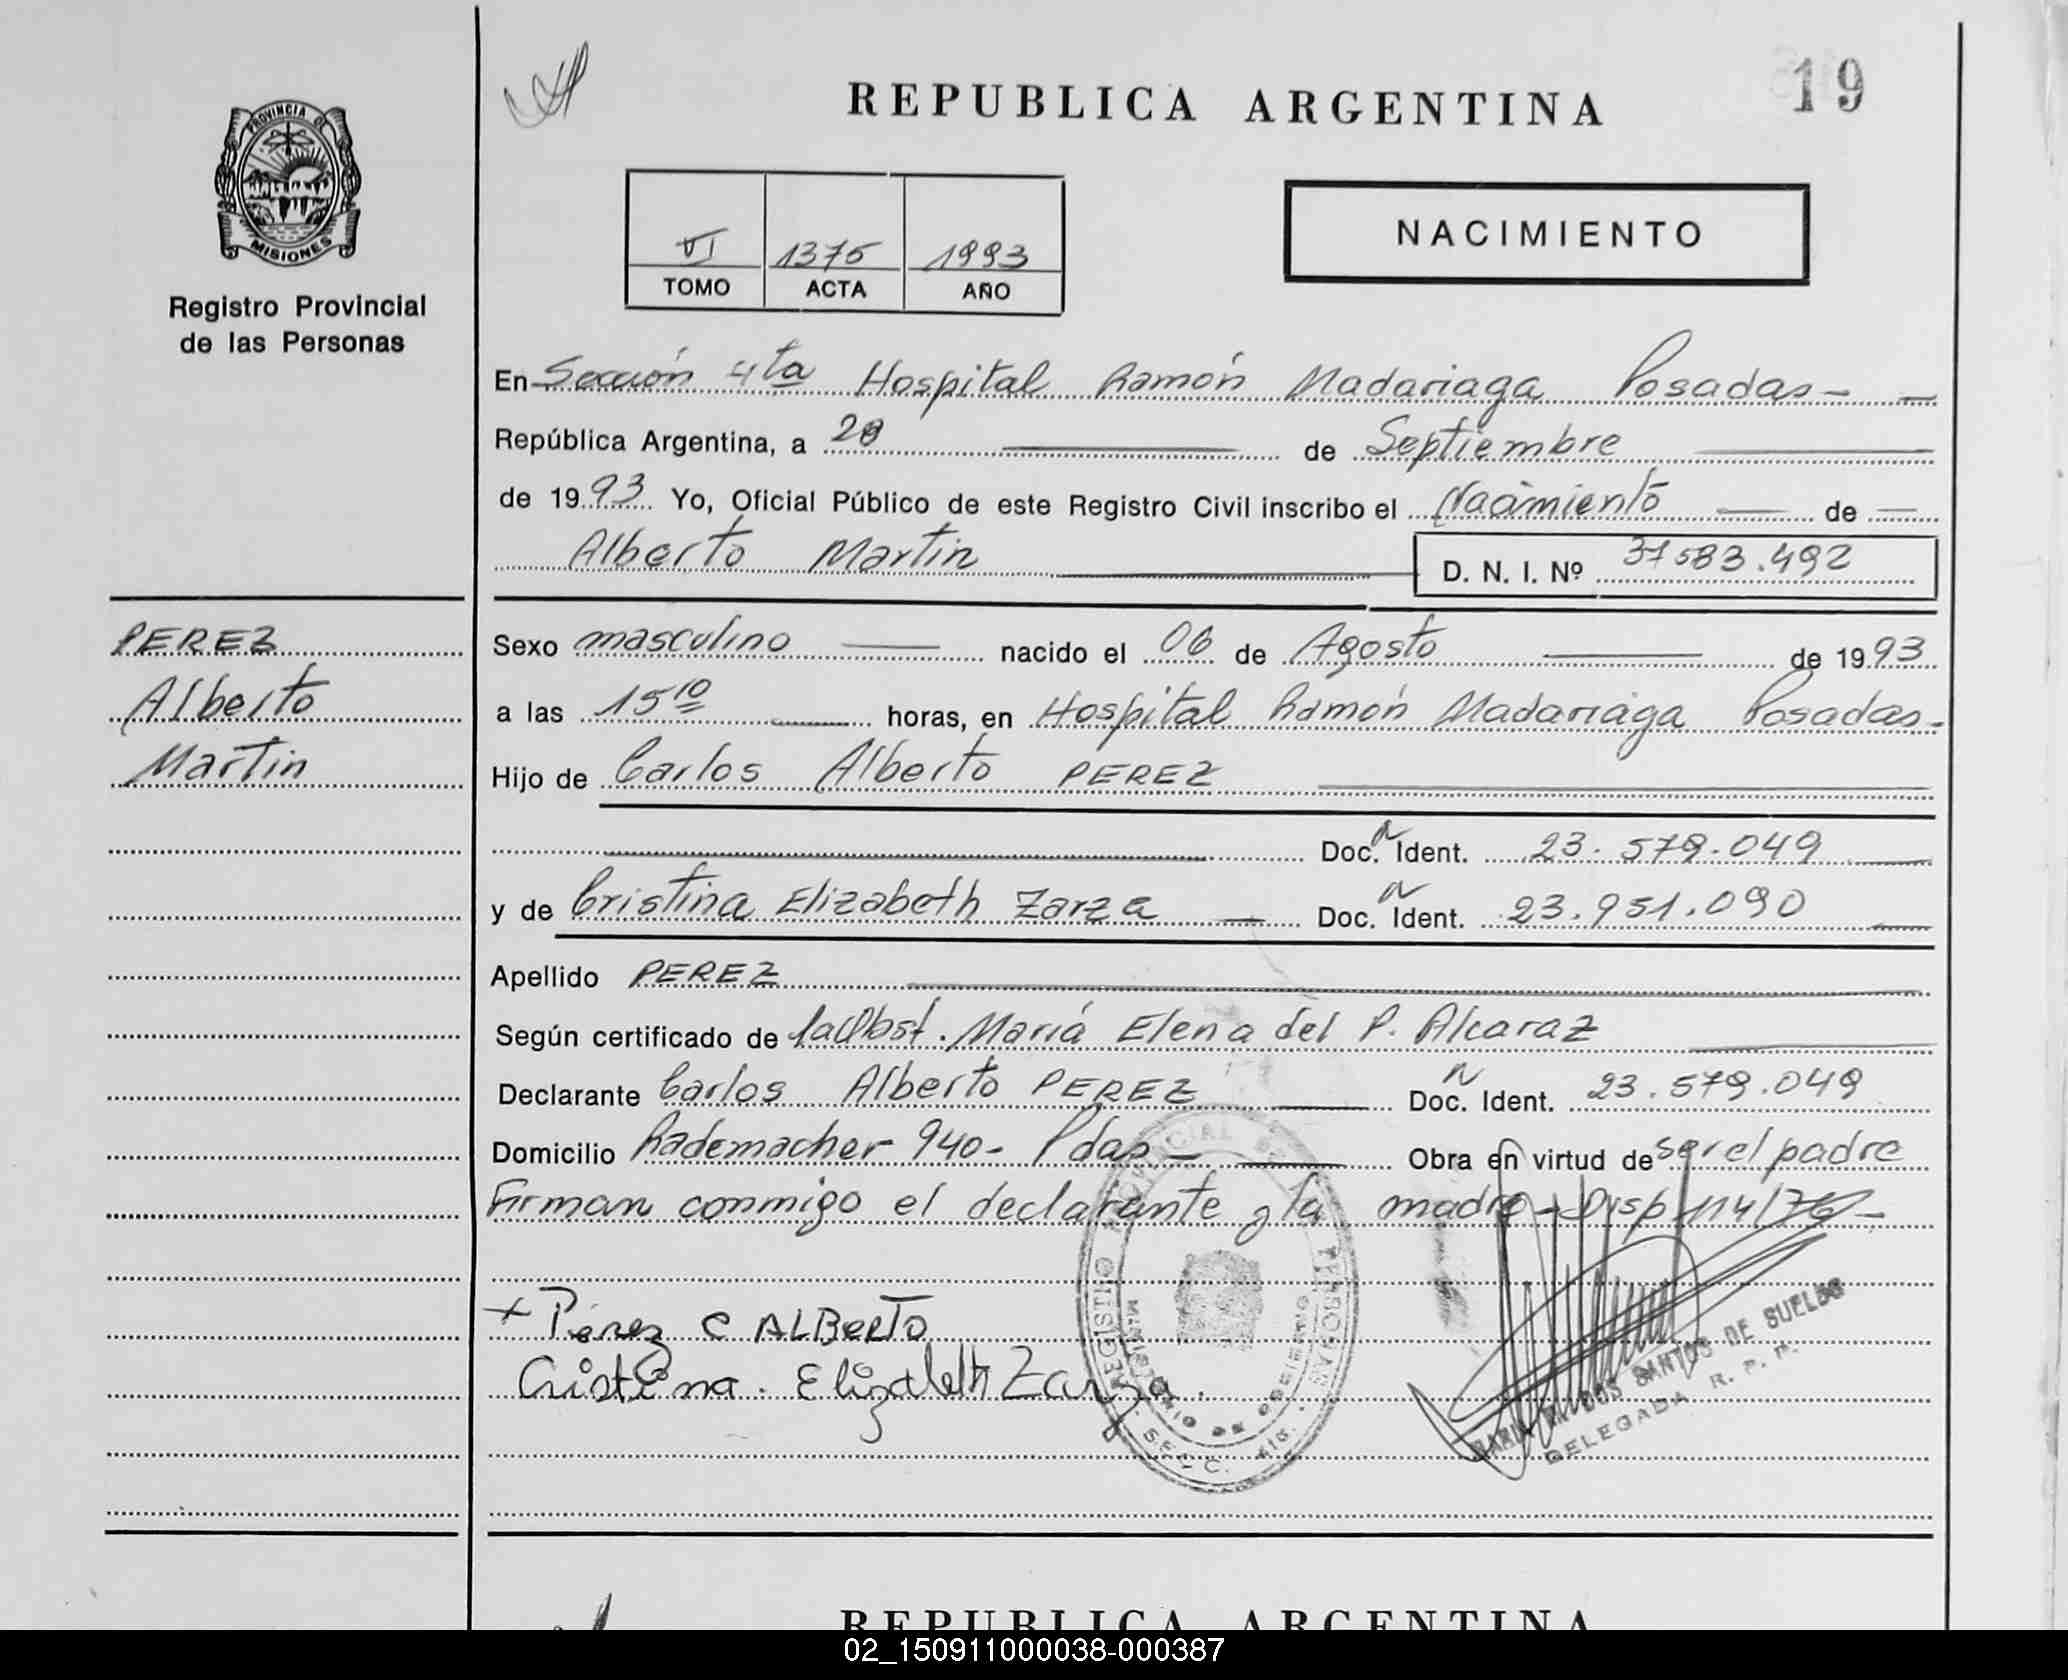 19
REPUBLICA ARGENTINA
PROVINCIA DE
MISIONES
Registro Provincial
de las Personas
VI 1375 1993
TOMO ACTA AÑO
NACIMIENTO
En Sección 4ta Hospital Ramón Madariaga Posadas - -
República Argentina, a de Septiembre
de 1993 Yo, Oficial Público de este Registro Civil inscribo el Nacimiento de
Alberto Martin D. N. I. Nº 37583.492
PEREZ
Alberto
Martin
Sexo masculino nacido el 06 de Agosto de 1993
a las 15 10 horas, en Hospital Ramón Madariaga Posadas -
Hijo de Carlos Alberto PEREZ
Doc. N Ident. 23.579.049
y de Cristina Elizabeth Zarza Doc. N Ident. 23.951.090
Apellido PEREZ
Según certificado de la Obst. María Elena del P. Alcaraz
Declarante Carlos Alberto PEREZ Doc. N Ident. 23.579.049
Domicilio Rademacher 940 - Pdas - Obra en virtud de ser el padre
Firman conmigo el declarante y la madre - Disp 114/76 -
+ Pérez C ALBERTO
Cristina . Elizabeth Zarza .
DOS SANTOS DE SUELDO
DELEGADA R. P. P.
REPUBLICA ARGENTINA
02_150911000038-000387